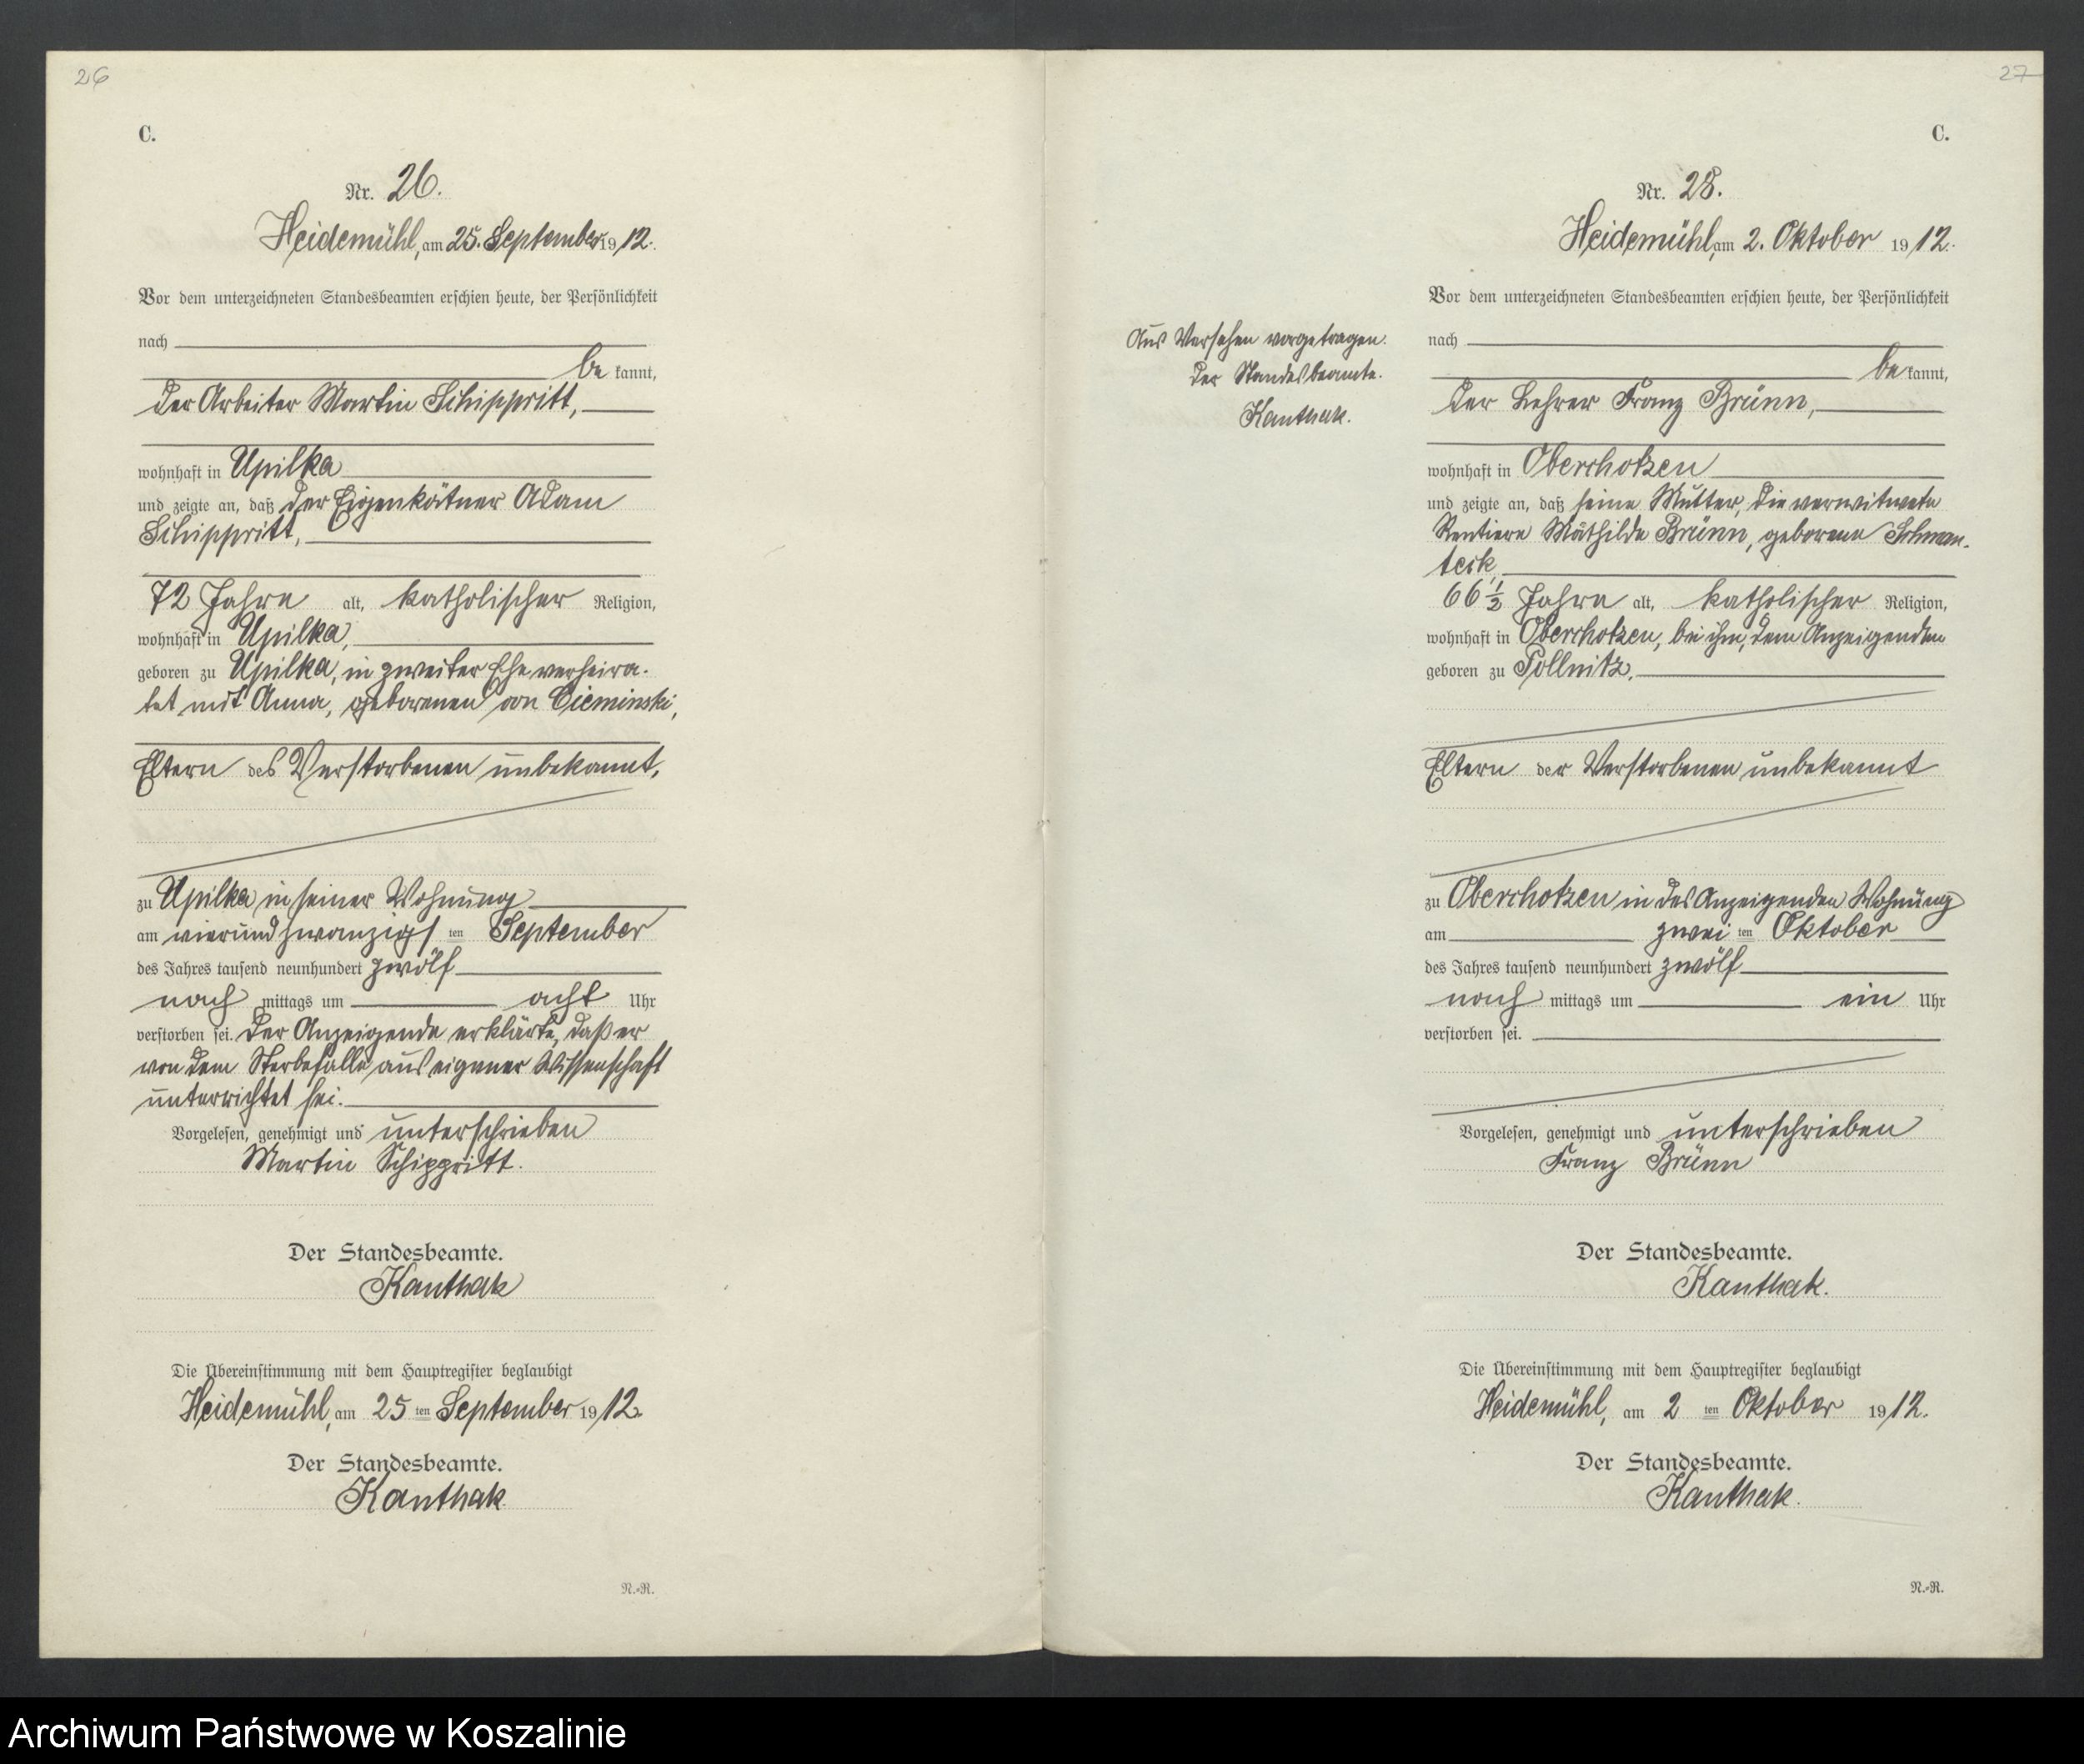 26
C.
Nr. 26.
Heidemühl, am 25. September 1912.
Vor dem unterzeichneten Standesbeamten erschien heute, der Persönlichkeit
nach
be kannt,
der Arbeiter Martin Schippritt,
wohnhaft in Upilka
und zeigte an, daß der Eigenkätner Adam
Schippritt,
72 Jahre alt, katholischer Religion,
wohnhaft in Upilka,
geboren zu Upilka, in zweiter Ehe verheira-
tet mit Anna, geborenen von Cieminski,
Eltern des Verstorbenen unbekannt,
zu Upilka in seiner Wohnung
am vierundzwanzigs ten September
des Jahres tausend neunhundert zwölf
nach mittags um acht Uhr
verstorben sei. Der Anzeigende erklärte, daß er
von dem Sterbefalle aus eigener Wissenschaft
unterrichtet sei.
Vorgelesen, genehmigt und unterschrieben
Martin Schippritt.
Der Standesbeamte.
Kanthak
Die Übereinstimmung mit dem Hauptregister beglaubigt
Heidemühl, am 25 ten September 1912.
Der Standesbeamte.
Kanthak
N.-R.
27
C.
Nr. 28.
Heidemühl, am 2. Oktober 1912.
Vor dem unterzeichneten Standesbeamten erschien heute, der Persönlichkeit
Aus Versehen vorgetragen.
Der Standesbeamte.
Kanthak.
nach
be kannt,
der Lehrer Franz Brünn,
wohnhaft in Oberchotzen
und zeigte an, daß seine Mutter, die verwitwete
Rentiere Mathilde Brünn, geborene Schwan-
teck
66 1/2 Jahre alt, katholischer Religion,
wohnhaft in Oberchotzen, bei ihm, dem Anzeigenden
geboren zu Pollnitz,
Eltern der Verstorbenen unbekannt
zu Oberchotzen in des Anzeigenden Wohnung
am zwei ten Oktober
des Jahres tausend neunhundert zwölf
nach mittags um ein Uhr
verstorben sei.
Vorgelesen, genehmigt und unterschrieben
Franz Brünn
Der Standesbeamte.
Kanthak.
Die Übereinstimmung mit dem Hauptregister beglaubigt
Heidemühl, am 2 ten Oktober 1912.
Der Standesbeamte.
Kanthak.
N.-R.
Archiwum Państwowe w Koszalinie